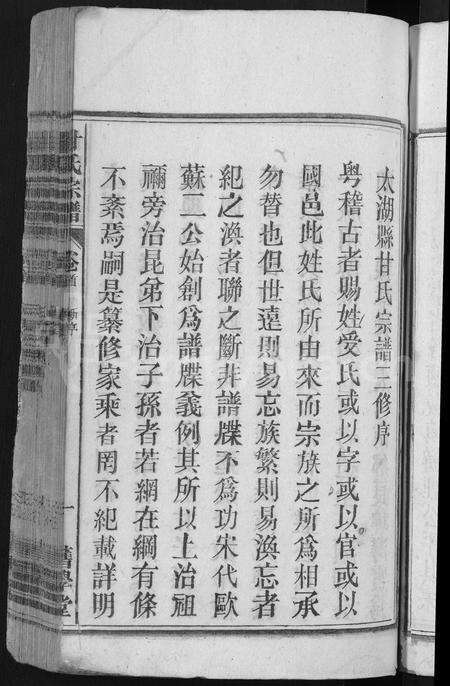 太湖縣甘氏宗譜三修序
粤稽古者賜姓受氏或以字或以官或以
國邑此姓氏所由來而宗族之所爲相承
勿替也但世遠則易忘族繁則易渙忘者
紀之渙者聯之斷非譜牒不爲功宋代歐
蘇二公始創爲譜牒義例其所以上治祖
禰旁治昆弟下治子孫者若網在綱有條
不紊焉嗣是纂修家乘者罔不紀載詳明
甘氏宗譜
卷首
新序
一